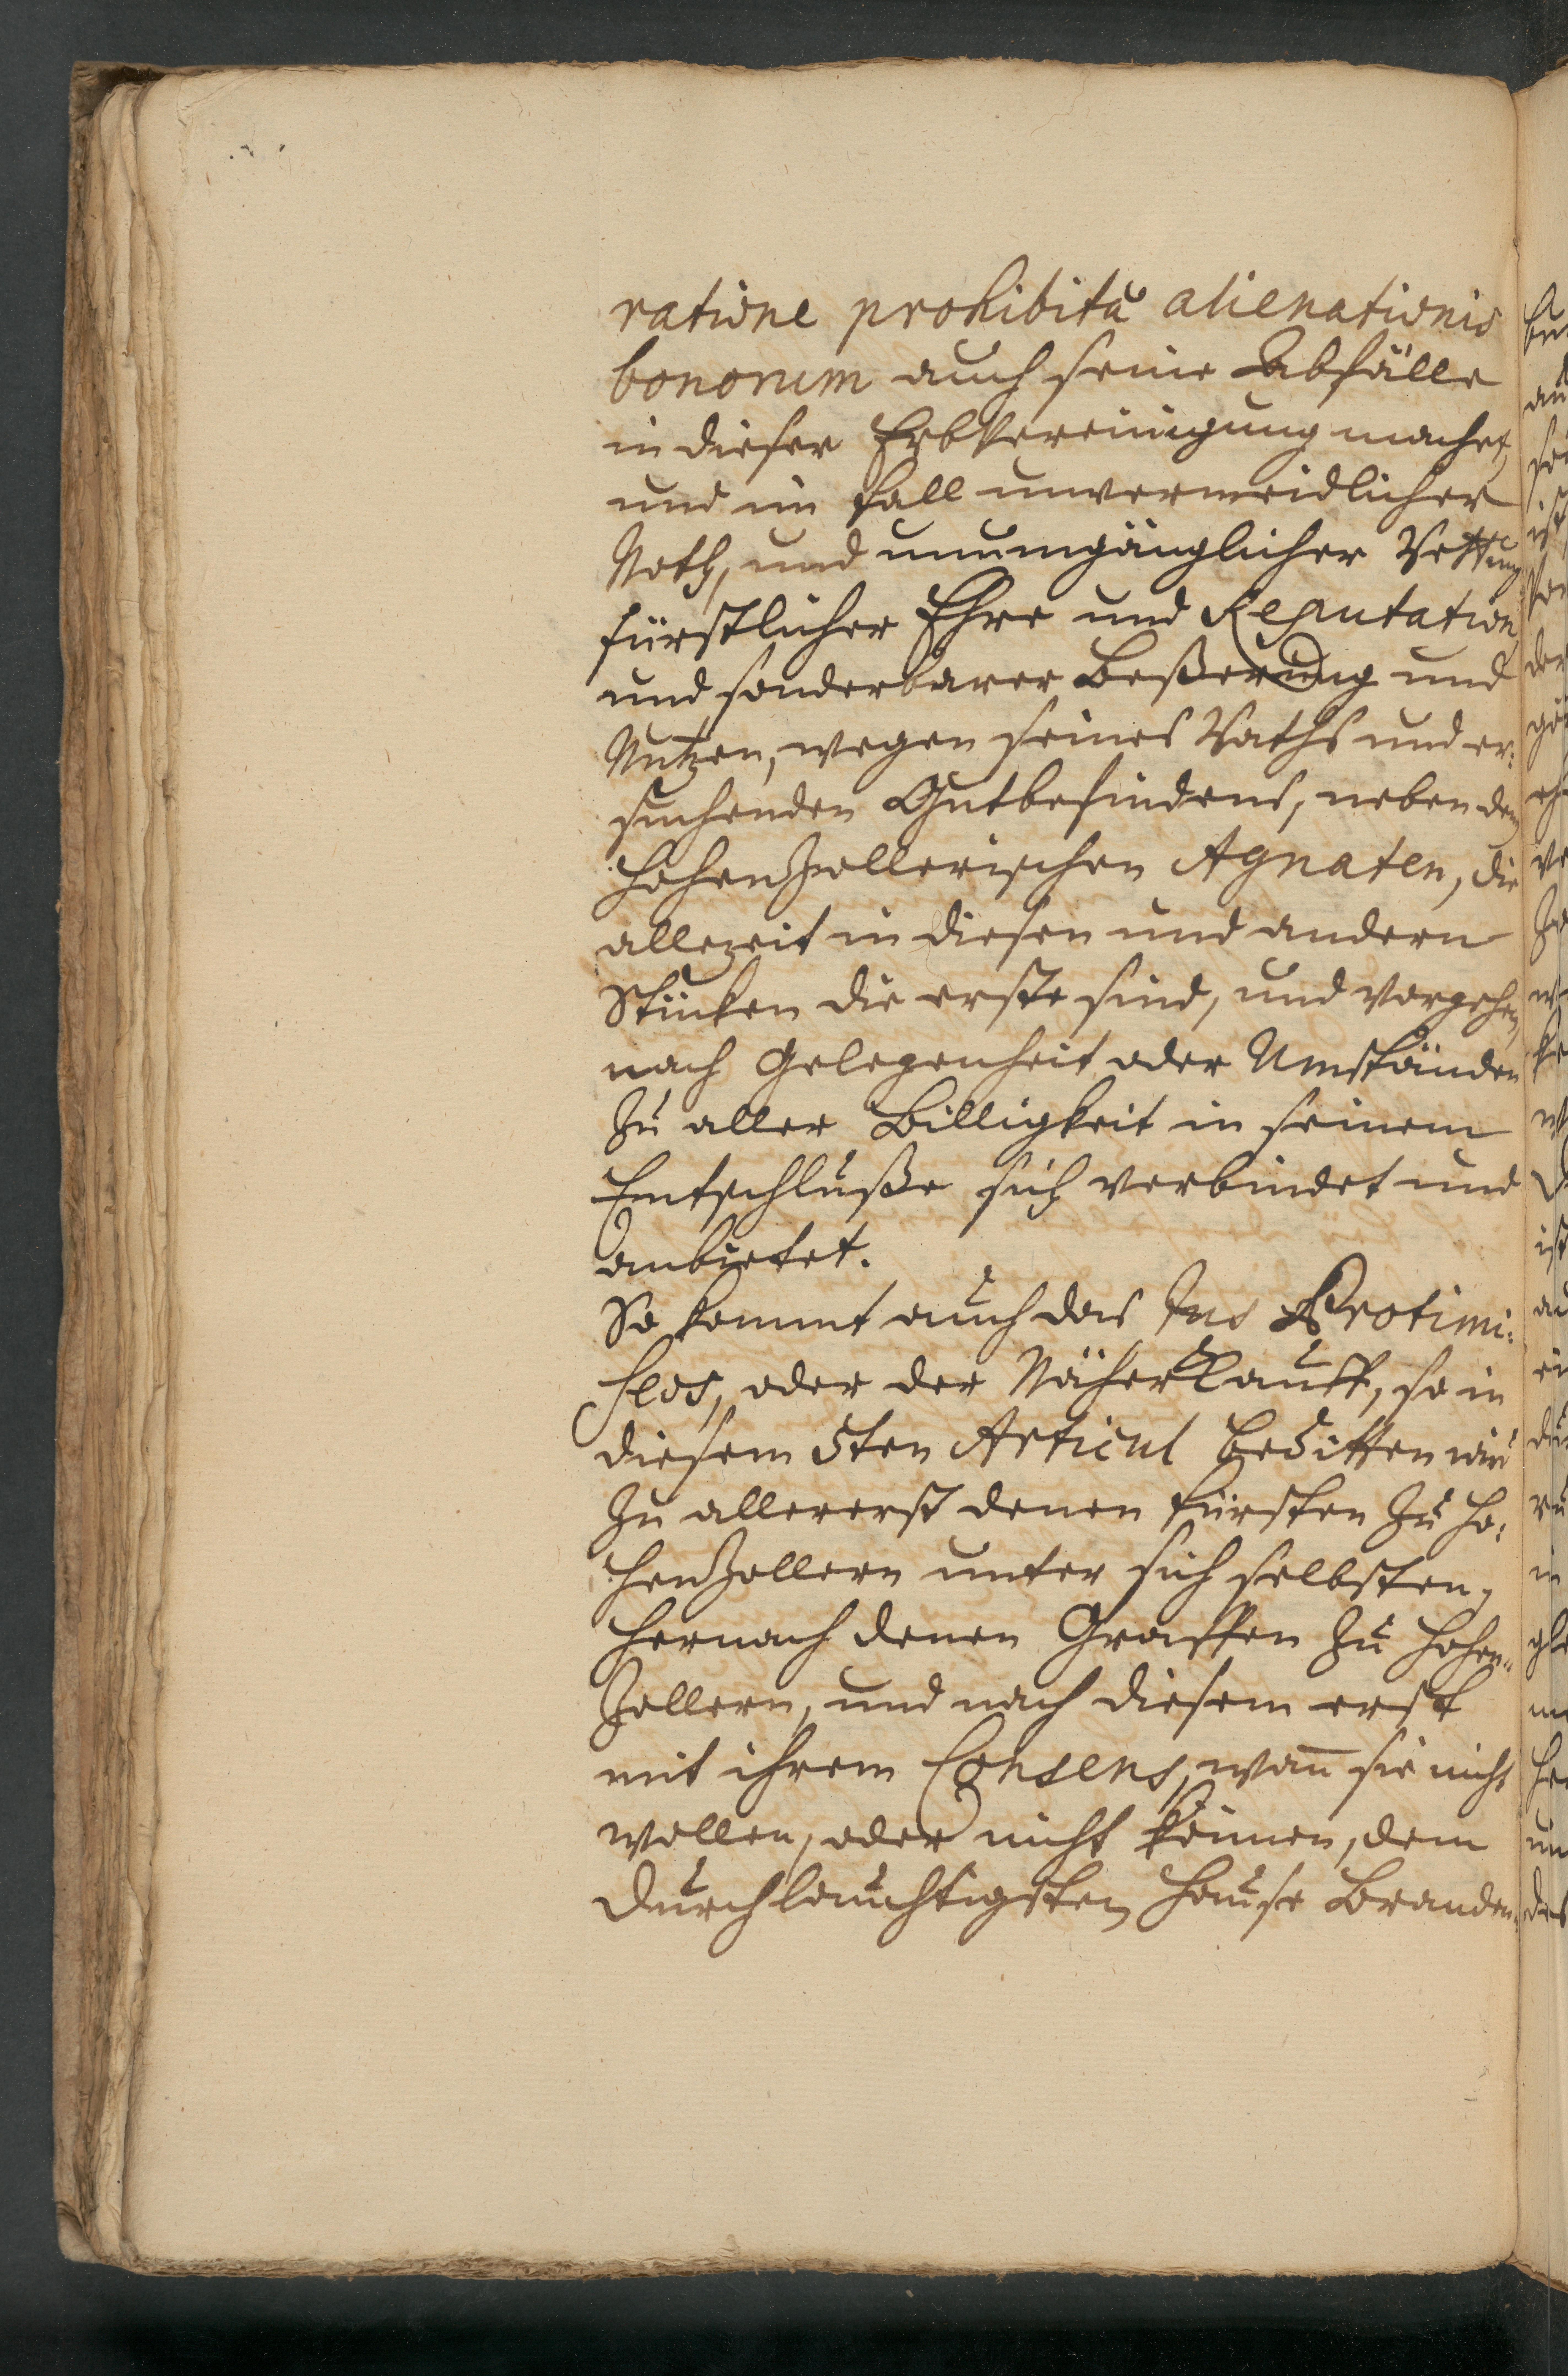 ratione prohibitæ alienationis
bonorum auch seine Abfälle
in dieser Erbvereinigung machet,
und im Fall unvermeidlicher
Noth, und unumgänglicher Rettung
fürstlicher Ehre und Reputation,
und sonderbarer Beßerung und
Nutzen, wegen seines Raths und er:
suchenden Gutbefindens, neben den
Hohenzollerischen Agnaten, die
allezeit in diesen und andern
Stücken die erste sind, und vorgehen,
nach Gelegenheit oder Umständen
zu aller Billigkeit in seinem
Entschluße sich verbindet und
anbietet.
So kommt auch das Jus Protimi:
seos, oder der Näher Kauff, so in
diesem 5ten Articul beditten wird
zu allererst denen Fürsten zu Ho:
henzollern unter sich selbsten,
hernach denen Graffen zu Hohen-
zollern, und nach diesem erst
mit ihrem Consens, wan̄ sie nicht
wollen, oder nicht können, dem
Durchlauchtigsten Hause Branden-